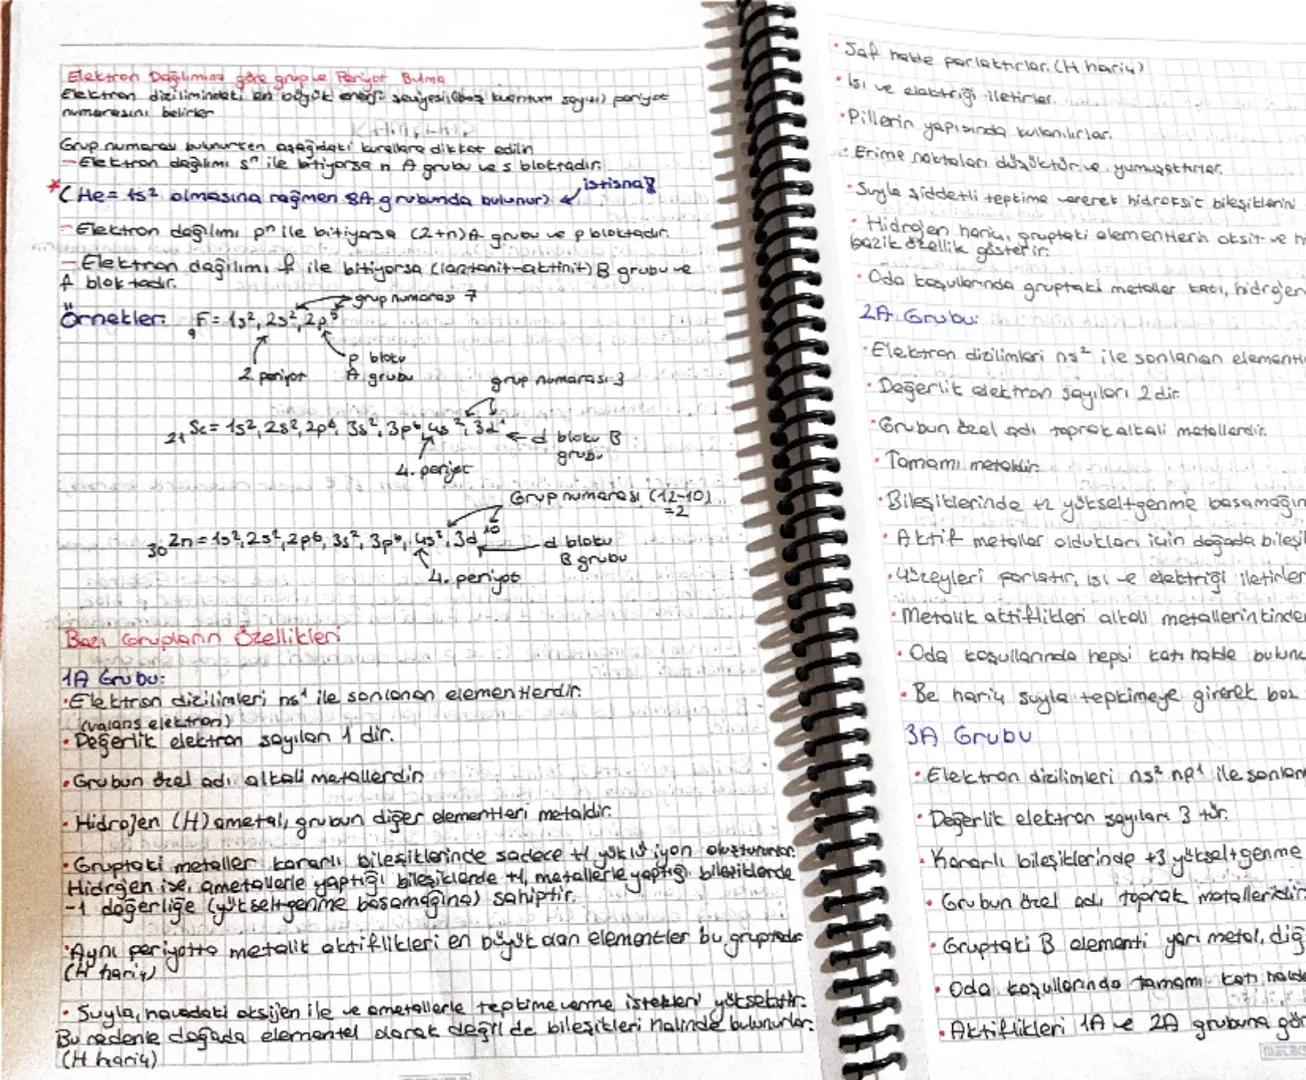 Elektron Dağılımına göre grup ve Periyot Bulma
Elektron dizilimindeki en büyük enerji seviyesi (baş kuantum sayısı) periyot
numarasını belirler
Grup numarası bulunurken aşağıdaki kurallara dikkat edilir
- Elektron dağılımı sⁿ ile bitiyorsa n A grubu ve s bloktadır.
* (He = 1s² olmasına rağmen 8A grubunda bulunur) istisna
- Elektron dağılımı pⁿ ile bitiyorsa (2+n)A grubu ve p bloktadır.
- Elektron dağılımı f ile bitiyorsa (lantanit-aktinit) B grubu ve
f bloktadır.
grup numarası 7
Örnekler: ₉F = 1s², 2s², 2p⁵
p bloku
2. periyot A grubu
grup numarası 3
₂₁Sc = 1s², 2s², 2p⁶, 3s², 3p⁶, 4s², 3d¹
d bloku B
grubu
4. periyot
Grup numarası (12-10)
=2
₃₀Zn = 1s², 2s², 2p⁶, 3s², 3p⁶, 4s², 3d¹⁰
d bloku
B grubu
4. periyot
Bazı Grupların Özellikleri
1A Grubu:
• Elektron dizilimleri ns¹ ile sonlanan elementlerdir.
(valans elektron)
• Değerlik elektron sayıları 1 dir.
• Grubun özel adı alkali metallerdir
• Hidrojen (H) ametal, grubun diğer elementleri metaldir.
• Gruptaki metaller kararlı bileşiklerinde sadece +1 yüklü iyon oluştururlar.
Hidrojen ise, ametallerle yaptığı bileşiklerde +1, metallerle yaptığı bileşiklerde
-1 değerliğe (yükseltgenme basamağına) sahiptir.
• Aynı periyotta metalik aktiflikleri en büyük olan elementler bu gruptadır
(H hariç)
• Suyla, havadaki oksijen ile ve ametallerle tepkime verme istekleri yüksektir.
Bu nedenle doğada elementel olarak değil de bileşikleri halinde bulunurlar.
(H hariç)
• Saf halde parlaktırlar. (H hariç)
• Isı ve elektriği iletirler.
• Pillerin yapısında kullanılırlar.
• Erime noktaları düşüktür ve yumuşaktırlar.
• Suyla şiddetli tepkime vererek hidroksit bileşiklerini
• Hidrojen hariç, gruptaki elementlerin oksit ve h
bazik özellik gösterir.
• Oda koşullarında gruptaki metaller katı, hidrojen
2A Grubu:
• Elektron dizilimleri ns² ile sonlanan element
• Değerlik elektron sayıları 2 dir
• Grubun özel adı toprak alkali metallerdir.
• Tamamı metaldir.
• Bileşiklerinde +2 yükseltgenme basamağın
• Aktif metaller oldukları için doğada bileşi
• Yüzeyleri parlatır, ısı ve elektriği iletirler
• Metalik aktiflikleri alkali metallerinkinde
• Oda koşullarında hepsi katı halde bulun
• Be hariç suyla tepkimeye girerek baz
3A Grubu
• Elektron dizilimleri ns² np¹ ile sonlan
• Değerlik elektron sayıları 3 tür.
• Kararlı bileşiklerinde +3 yükseltgenme
• Grubun özel adı toprak metalleridir
• Gruptaki B elementi yarı metal, diğ
• Oda koşullarında tamamı katı halde
• Aktiflikleri 1A ve 2A grubuna gör